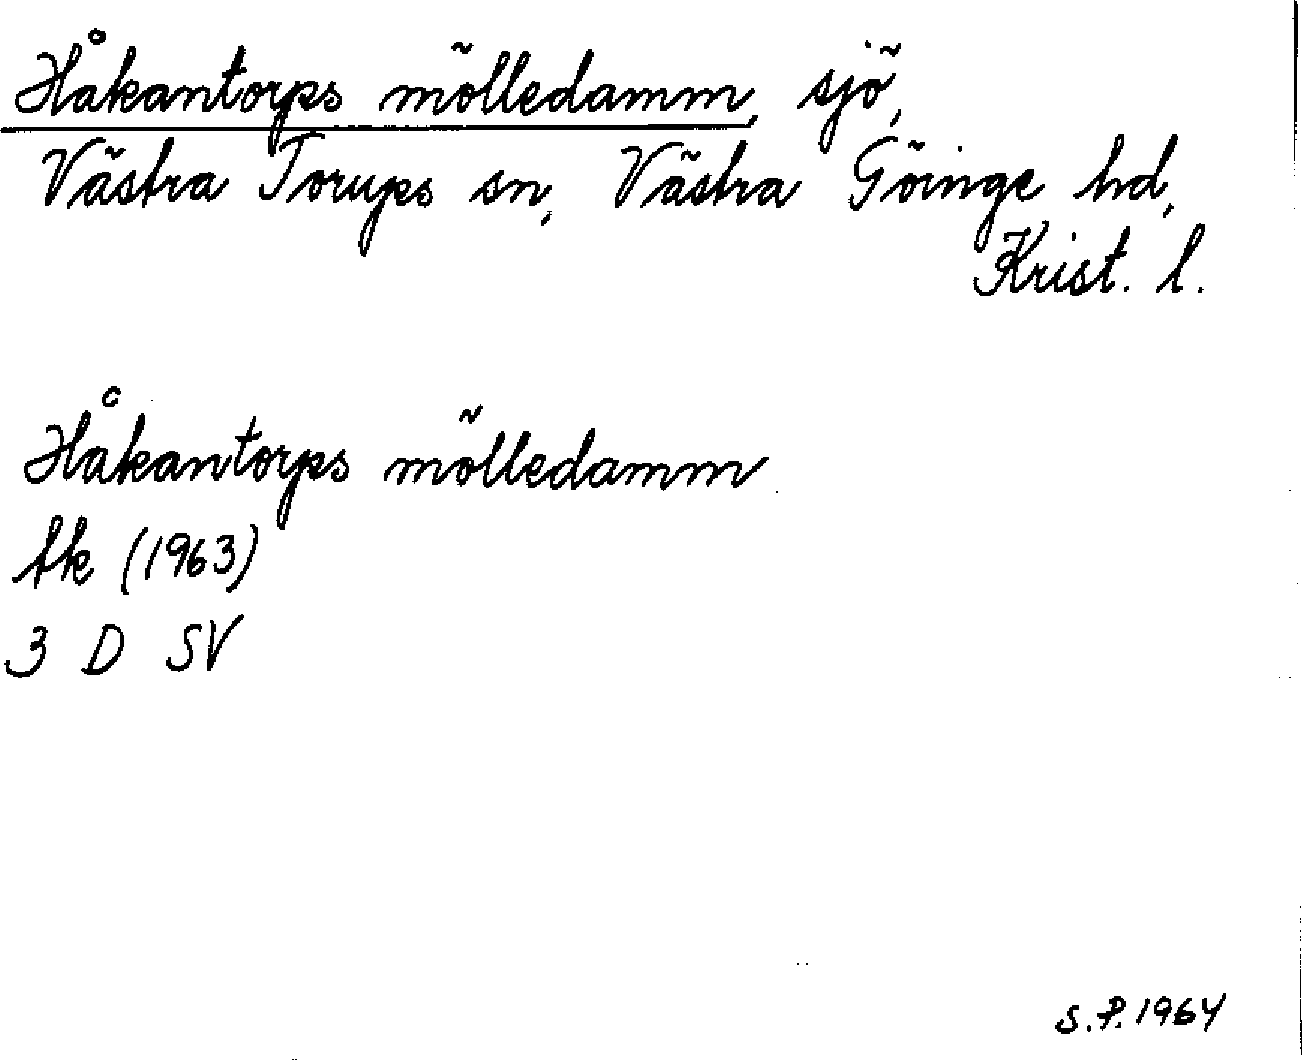 Håkantorps mölledamm, sjö,
Västra Torups sn, Västra Göinge hd,
Krist. l.
Håkantorps mölledamm
tk (1963)
3 D SV
S.P. 1964